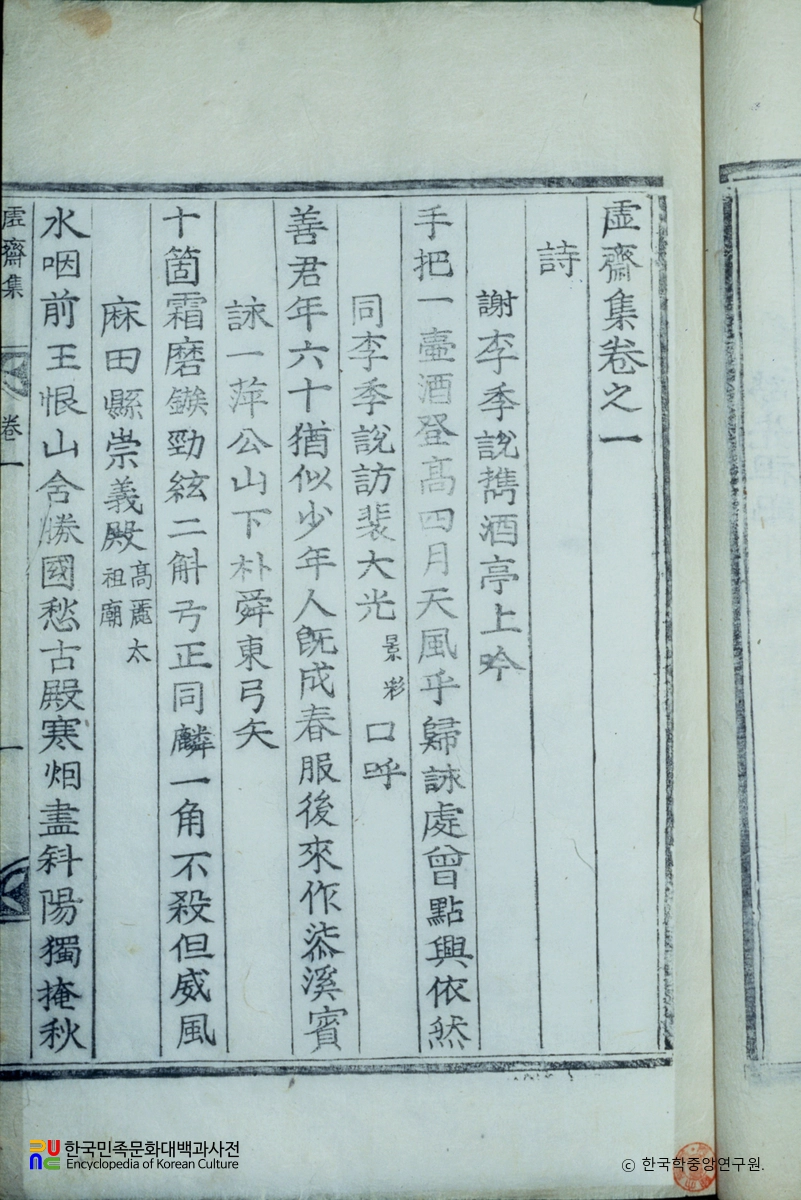 虛齋集卷之一
詩
謝李季說携酒亭上吟
手把一壷酒登高四月天風乎歸詠處曾點興依然
同李季說訪裴大光景彩口呼
善君年六十猶似少年人旣成春服後來作添溪賓
詠一萍公山下朴舜東弓矢
十箇霜磨鏃勁絃二斛弓正同麟一角不殺但威風
麻田縣崇義殿高麗太祖廟
水咽前王恨山含勝國愁古殿寒烟盡斜陽獨掩秋
虛齋集 卷一 一
한국민족문화대백과사전
Encyclopedia of Korean Culture
© 한국학중앙연구원.